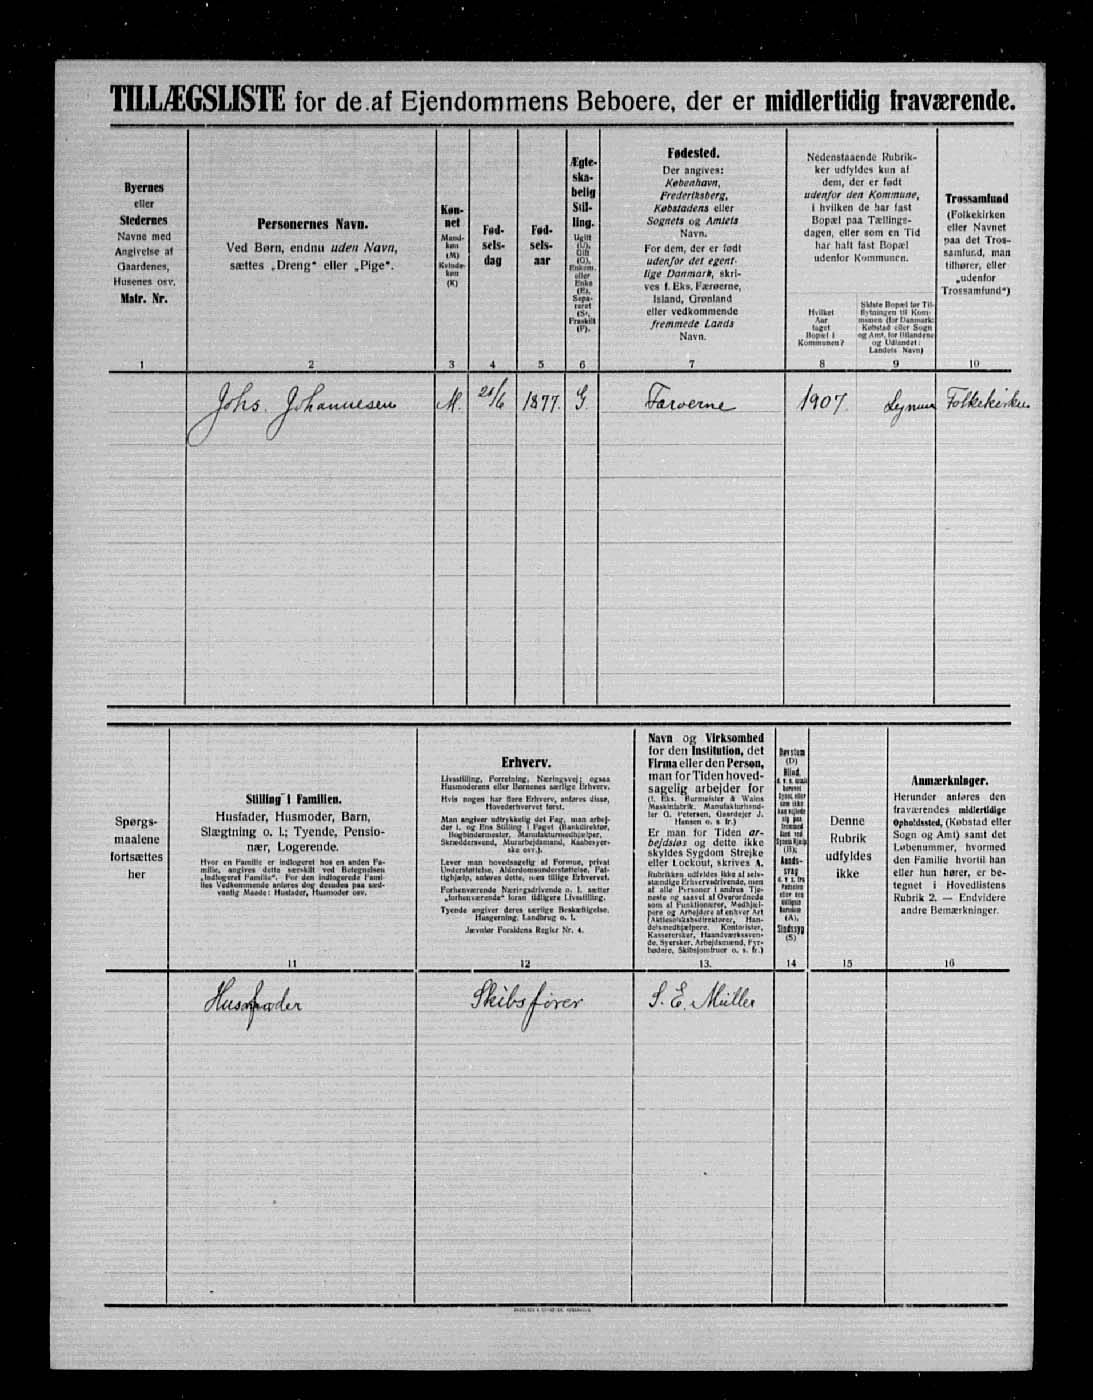 TILLÆGSLISTE for de af Ejendommens Beboere, der er midlertidig fraværende.
Byernes
eller
Stedernes
Navne med
Angivelse af
Gaardenes,
Husenes osv.
Matr. Nr.
Personernes Navn.
Ved Børn, endnu uden Navn,
sættes „Dreng“ eller „Pige“.
Køn-
net
Mand-
køn
(M)
Kvinde-
køn
(K)
Fød-
sels-
dag
Fød-
sels-
aar
Ægte-
ska-
belig
Stil-
ling.
Ugift
(U),
Gift
(G),
Enkem.
eller
Enke
(E),
Sepa-
reret
(S),
Fraskilt
(F).
Fødested.
Der angives:
København,
Frederiksberg,
Købstadens eller
Sognets og Amtets
Navn.
For dem, der er født
udenfor det egent-
lige Danmark, skri-
ves f. Eks. Færøerne,
Island, Grønland
eller vedkommende
fremmede Lands
Navn.
Nedenstaaende Rubrik-
ker udfyldes kun af
dem, der er født
udenfor den Kommune,
i hvilken de har fast
Bopæl paa Tællings-
dagen, eller som en Tid
har haft fast Bopæl
udenfor Kommunen.
Hvilket
Aar
taget
Bopæl i
Kommunen?
Sidste Bopæl før Til-
flytningen til Kom-
munen (for Danmark:
Købstad eller Sogn
og Amt, for Bilandene
og Udlandet:
Landets Navn)
Trossamfund
(Folkekirken
eller Navnet
paa det Tros-
samfund, man
tilhører, eller
„udenfor
Trossamfund“)
1 2 3 4 5 6 7 8 9 10
Johs. Johannesen M. 1877. G. Færøerne 1907. Folkekirken
Spørgs-
maalene
fortsættes
her
Stilling i Familien.
Husfader, Husmoder, Barn,
Slægtning o. l.; Tyende, Pensio-
nær, Logerende.
Hvor en Familie er indlogeret hos en anden Fa-
milie, angives dette særskilt ved Betegnelsen
„Indlogeret Familie“. For den indlogerede Fami-
lies Vedkommende anføres dog desuden paa sæd-
vanlig Maade: Husfader, Husmoder osv.
Erhverv.
Livsstilling, Forretning, Næringsvej; ogsaa
Husmoderens eller Børnenes særlige Erhverv.
Hvis nogen har flere Erhverv, anføres disse,
Hovederhvervet først.
Man angiver udtrykkelig det Fag, man arbej-
der i, og Ens Stilling i Faget (Bankdirektør,
Bogbindermester, Manufakturmedhjælper,
Skræddersvend, Murarbejdsmand, Kaabesyer-
ske osv.).
Lever man hovedsagelig af Formue, privat
Understøttelse, Alderdomsunderstøttelse, Fat-
tighjælp, anføres dette, men tillige Erhvervet.
Forhenværende Næringsdrivende o. l. sætter
„forhenværende“ foran tidligere Livsstilling.
Tyende angiver deres særlige Beskæftigelse,
Husgerning, Landbrug o. l.
Jævnfør Forsidens Regler Nr. 4.
Navn og Virksomhed
for den Institution, det
Firma eller den Person,
man for Tiden hoved-
sagelig arbejder for
(f. Eks. Burmeister & Wains
Maskinfabrik, Manufakturhand-
ler O. Petersen, Gaardejer J.
Hansen o. s. fr.)
Er man for Tiden ar-
bejdsløs og dette ikke
skyldes Sygdom Strejke
eller Lockout, skrives A.
Rubrikken udfyldes ikke af selv-
stændige Erhvervsdrivende, men
af alle Personer i andres Tje-
neste og saavel af Overordnede
som af Funktionærer, Medhjæl-
pere og Arbejdere af enhver Art
(Aktieselskabsdirektører, Han-
delsmedhjælpere, Kontorister,
Kassererske, Haandværkssven-
de, Syersker, Arbejdsmænd, Fyr-
bødere, Skibsjomfruer o. s. fr.)
Døvstum
(D)
Blind,
Aands-
svag
(A),
Sindssyg
(S)
Denne
Rubrik
udfyldes
ikke
Anmærkninger.
Herunder anføres den
fraværendes midlertidige
Opholdssted, (Købstad eller
Sogn og Amt) samt det
Løbenummer, hvormed
den Familie hvortil han
eller hun hører, er be-
tegnet i Hovedlistens
Rubrik 2. — Endvidere
andre Bemærkninger.
11 12 13. 14 15 16
Husfader Skibsfører S. E. Müller